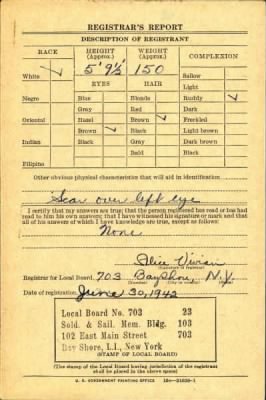 REGISTRAR'S REPORT
DESCRIPTION OF REGISTRANT
RACE HEIGHT (Approx.) WEIGHT (Approx.) COMPLEXION
White ✓ 5' 9½ 150 Sallow
EYES HAIR Light
Negro Blue Blonde Ruddy ✓
Gray Red Dark
Oriental Hazel Brown ✓ Freckled
Brown ✓ Black Light brown
Indian Black Gray Dark brown
Bald Black
Filipino
Other obvious physical characteristics that will aid in identification
Scar over left eye
I certify that my answers are true; that the person registered has read or has
had read to him his own answers; that I have witnessed his signature or mark and that
all of his answers of which I have knowledge are true, except as follows:
None
Alice Vivian
(Signature of registrar)
Registrar for Local Board 703 Bay Shore, N.Y.
(Number) (City or county) (State)
Date of registration June 30, 1942
Local Board No. 703 23
Sold. & Sail. Mem. Bldg. 103
102 East Main Street 703
Bay Shore, L.I., New York
(STAMP OF LOCAL BOARD)
(The stamp of the Local Board having jurisdiction of the registrant
shall be placed in the above space)
U. S. GOVERNMENT PRINTING OFFICE